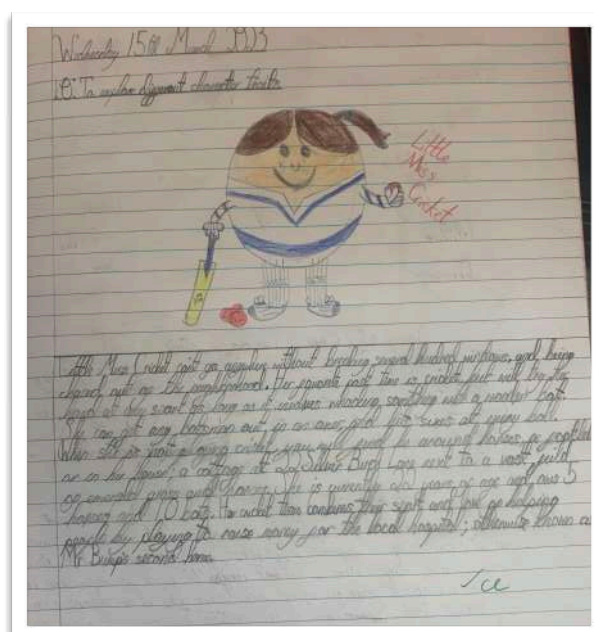 Wednesday 15th March 2023
LO: To explore different character traits.
Little
Miss
Cricket
Little Miss Cricket can't go anywhere without breaking several hundred windows, and being
chased out of the neighbourhood. Her favourite past time is cricket but will try her
hand at any sport as long as it involves whacking something with a wooden bat.
She can get any batsman out in an over, and hits sixes at every ball.
When she is not playing cricket you will find her around horses
or in her house; a cottage at Silver Birch Lane next to a vast field
of emerald grass and horses. She is currently years of age and owns 5
horses and 10 bats. Her cricket team combines their sport and love of helping
people by playing to raise money for the local hospital; otherwise known as
Mr Bump's second home.